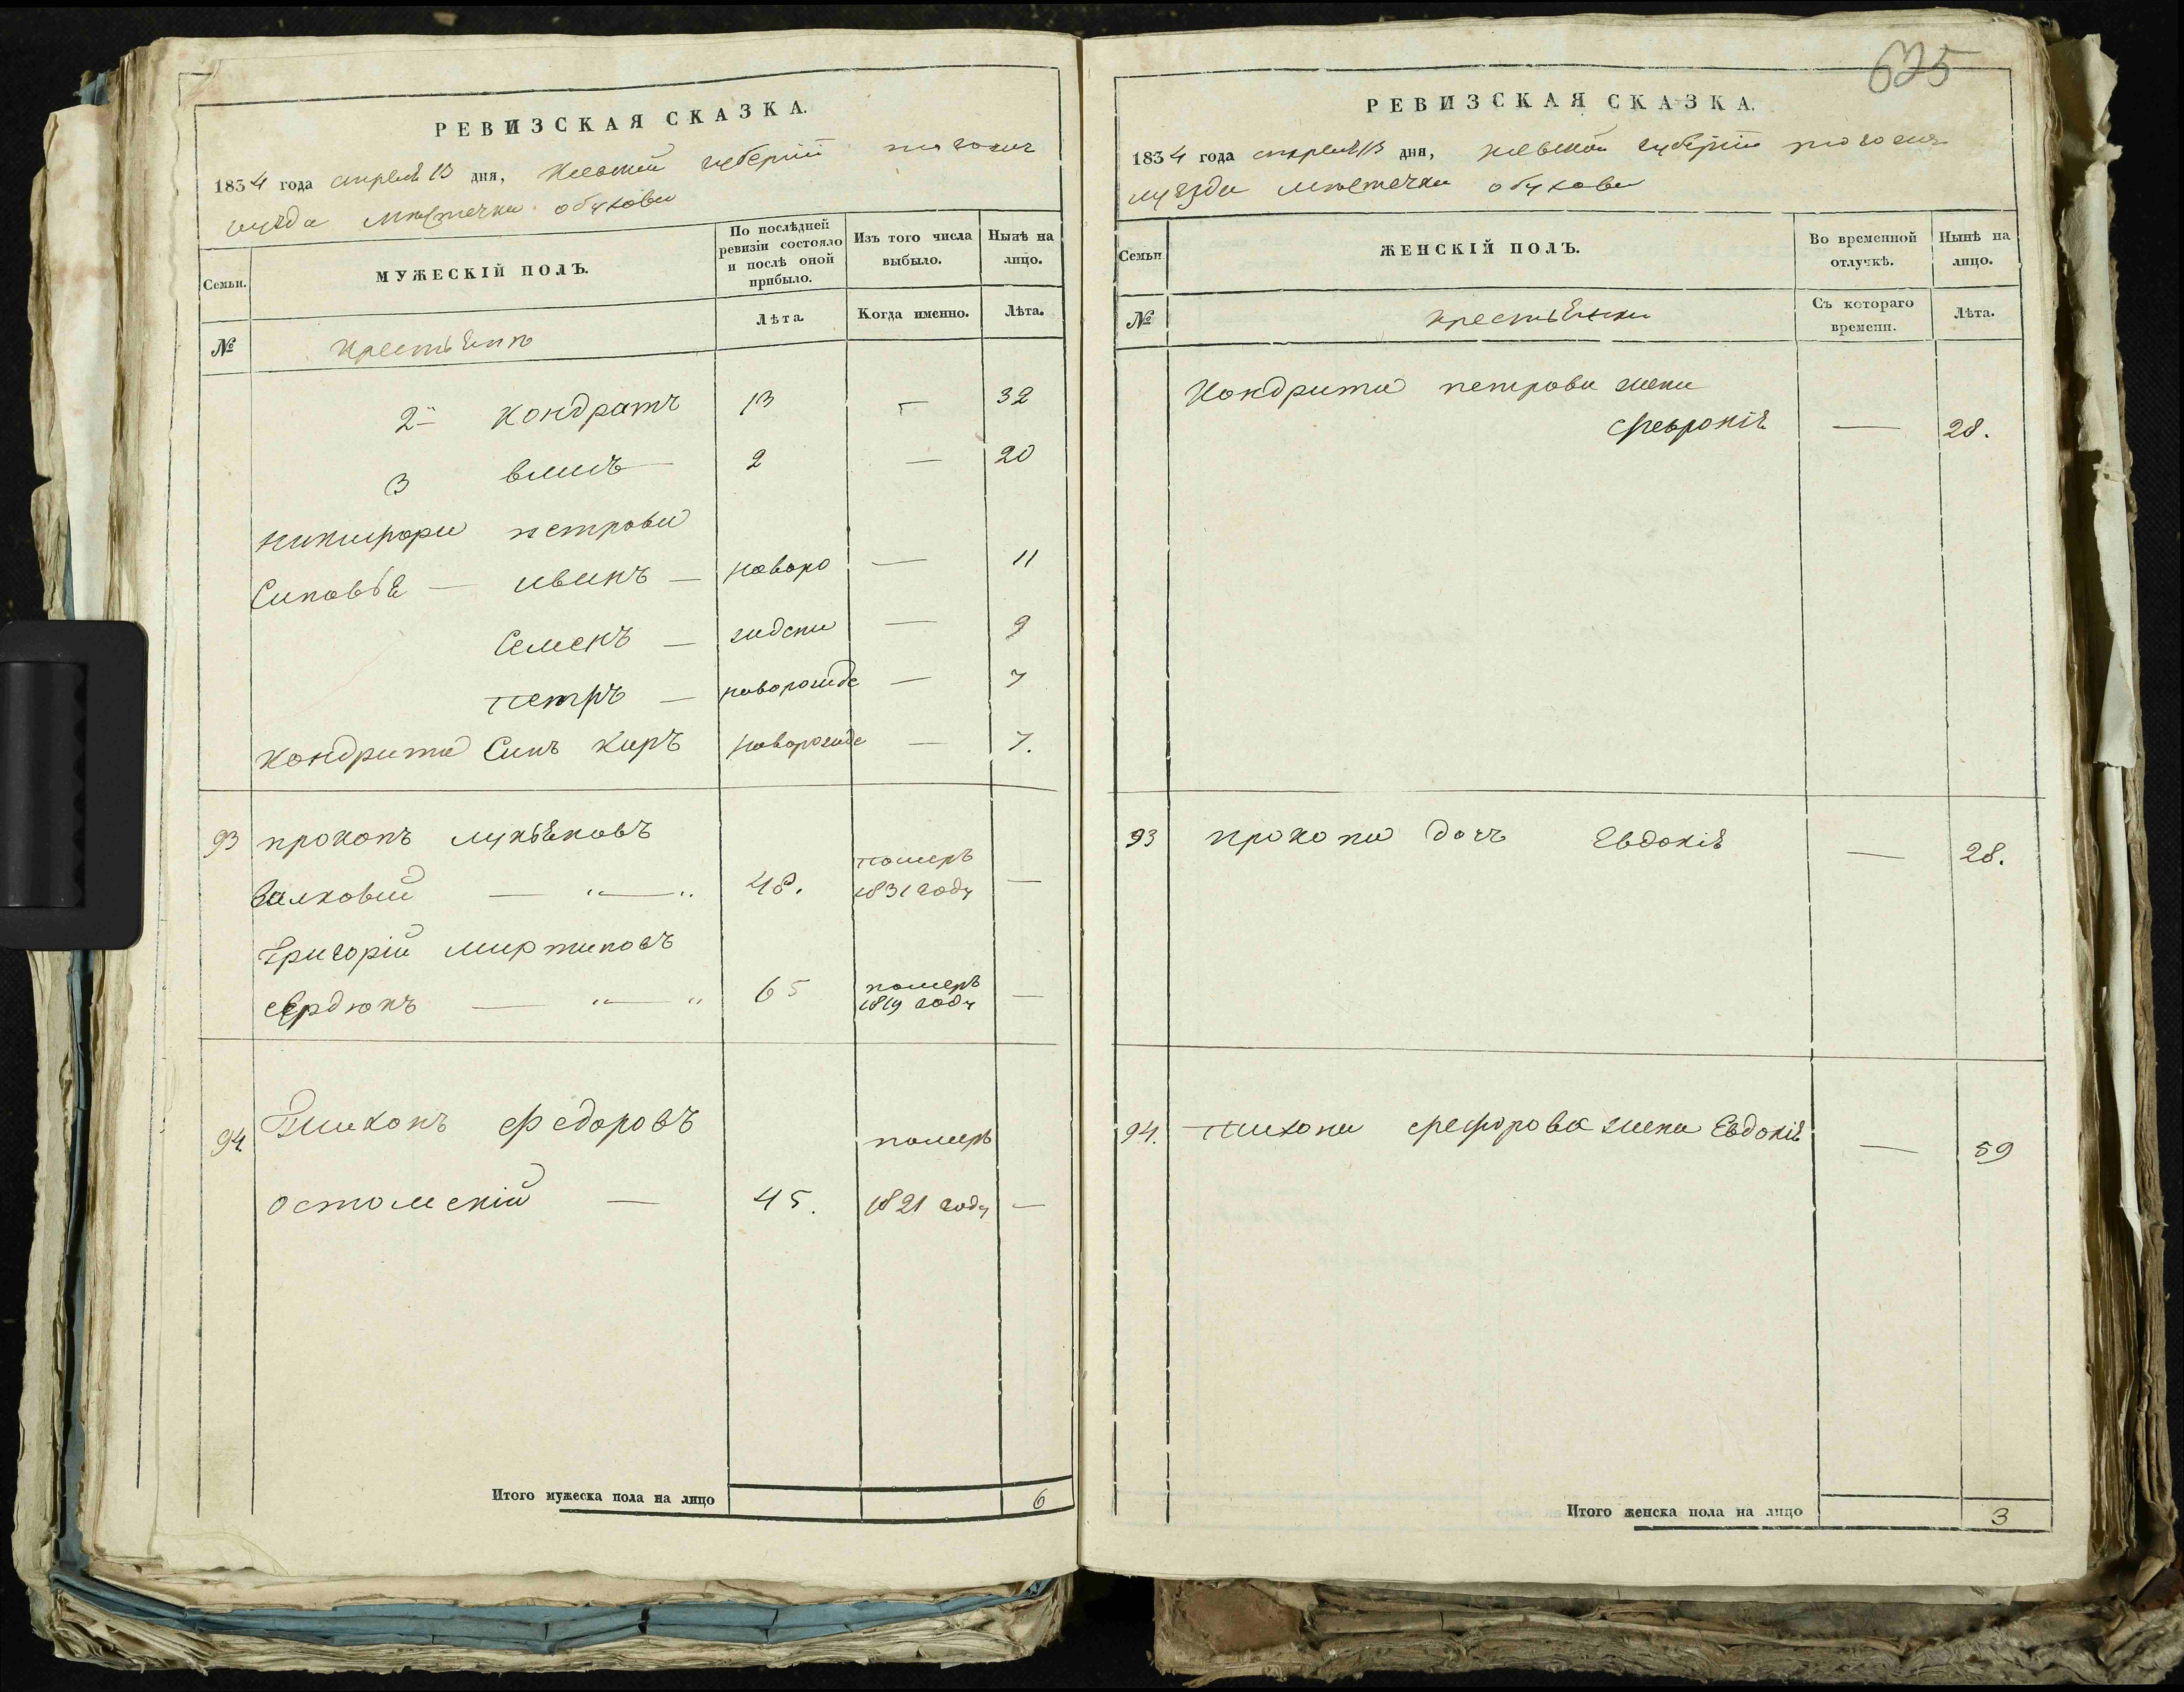 РЕВИЗСКАЯ СКАЗКА.
1834 года апреля 13 дня, Киевской губернии того же
уезда местечка обухова
Семьи.
МУЖЕСКІЙ ПОЛЪ.
По послѣдней ревизіи состояло и послѣ оной прибыло.
Изъ того числа выбыло.
Нынѣ на лицо.
№
крестьянъ
Лѣта.
Когда именно.
Лѣта.
2й кондратъ 13 — 32
3 2 — 20
никифора петрова
Синовья — иванъ — новоро — 11
Семенъ — жденн — 9
петръ — новорожде — 7
кондрата Синъ киръ новорожде — 7.
93 прокопъ лукьяновъ
— „ — „ 48. померъ 1831 году —
Григорій мартиновъ
Сердюкъ — „ — „ 65 померъ 1819 году —
94. Тихонъ федоровъ
остомскій — 45. померъ 1821 году —
Итого мужеска пола на лицо 6
625
РЕВИЗСКАЯ СКАЗКА.
1834 года апреля 13 дня, киевской губернии того же
уезда местечка обухова
Семьи
ЖЕНСКІЙ ПОЛЪ.
Во временной отлучкѣ.
Нынѣ на лицо.
№
крестьянки
Съ котораго времени.
Лѣта.
Кондрата петрова жена
Феврония — 28.
93 прокопа дочъ Евдокія — 28.
94. тихона федорова жена Евдокія — 59
Итого женска пола на лицо 3